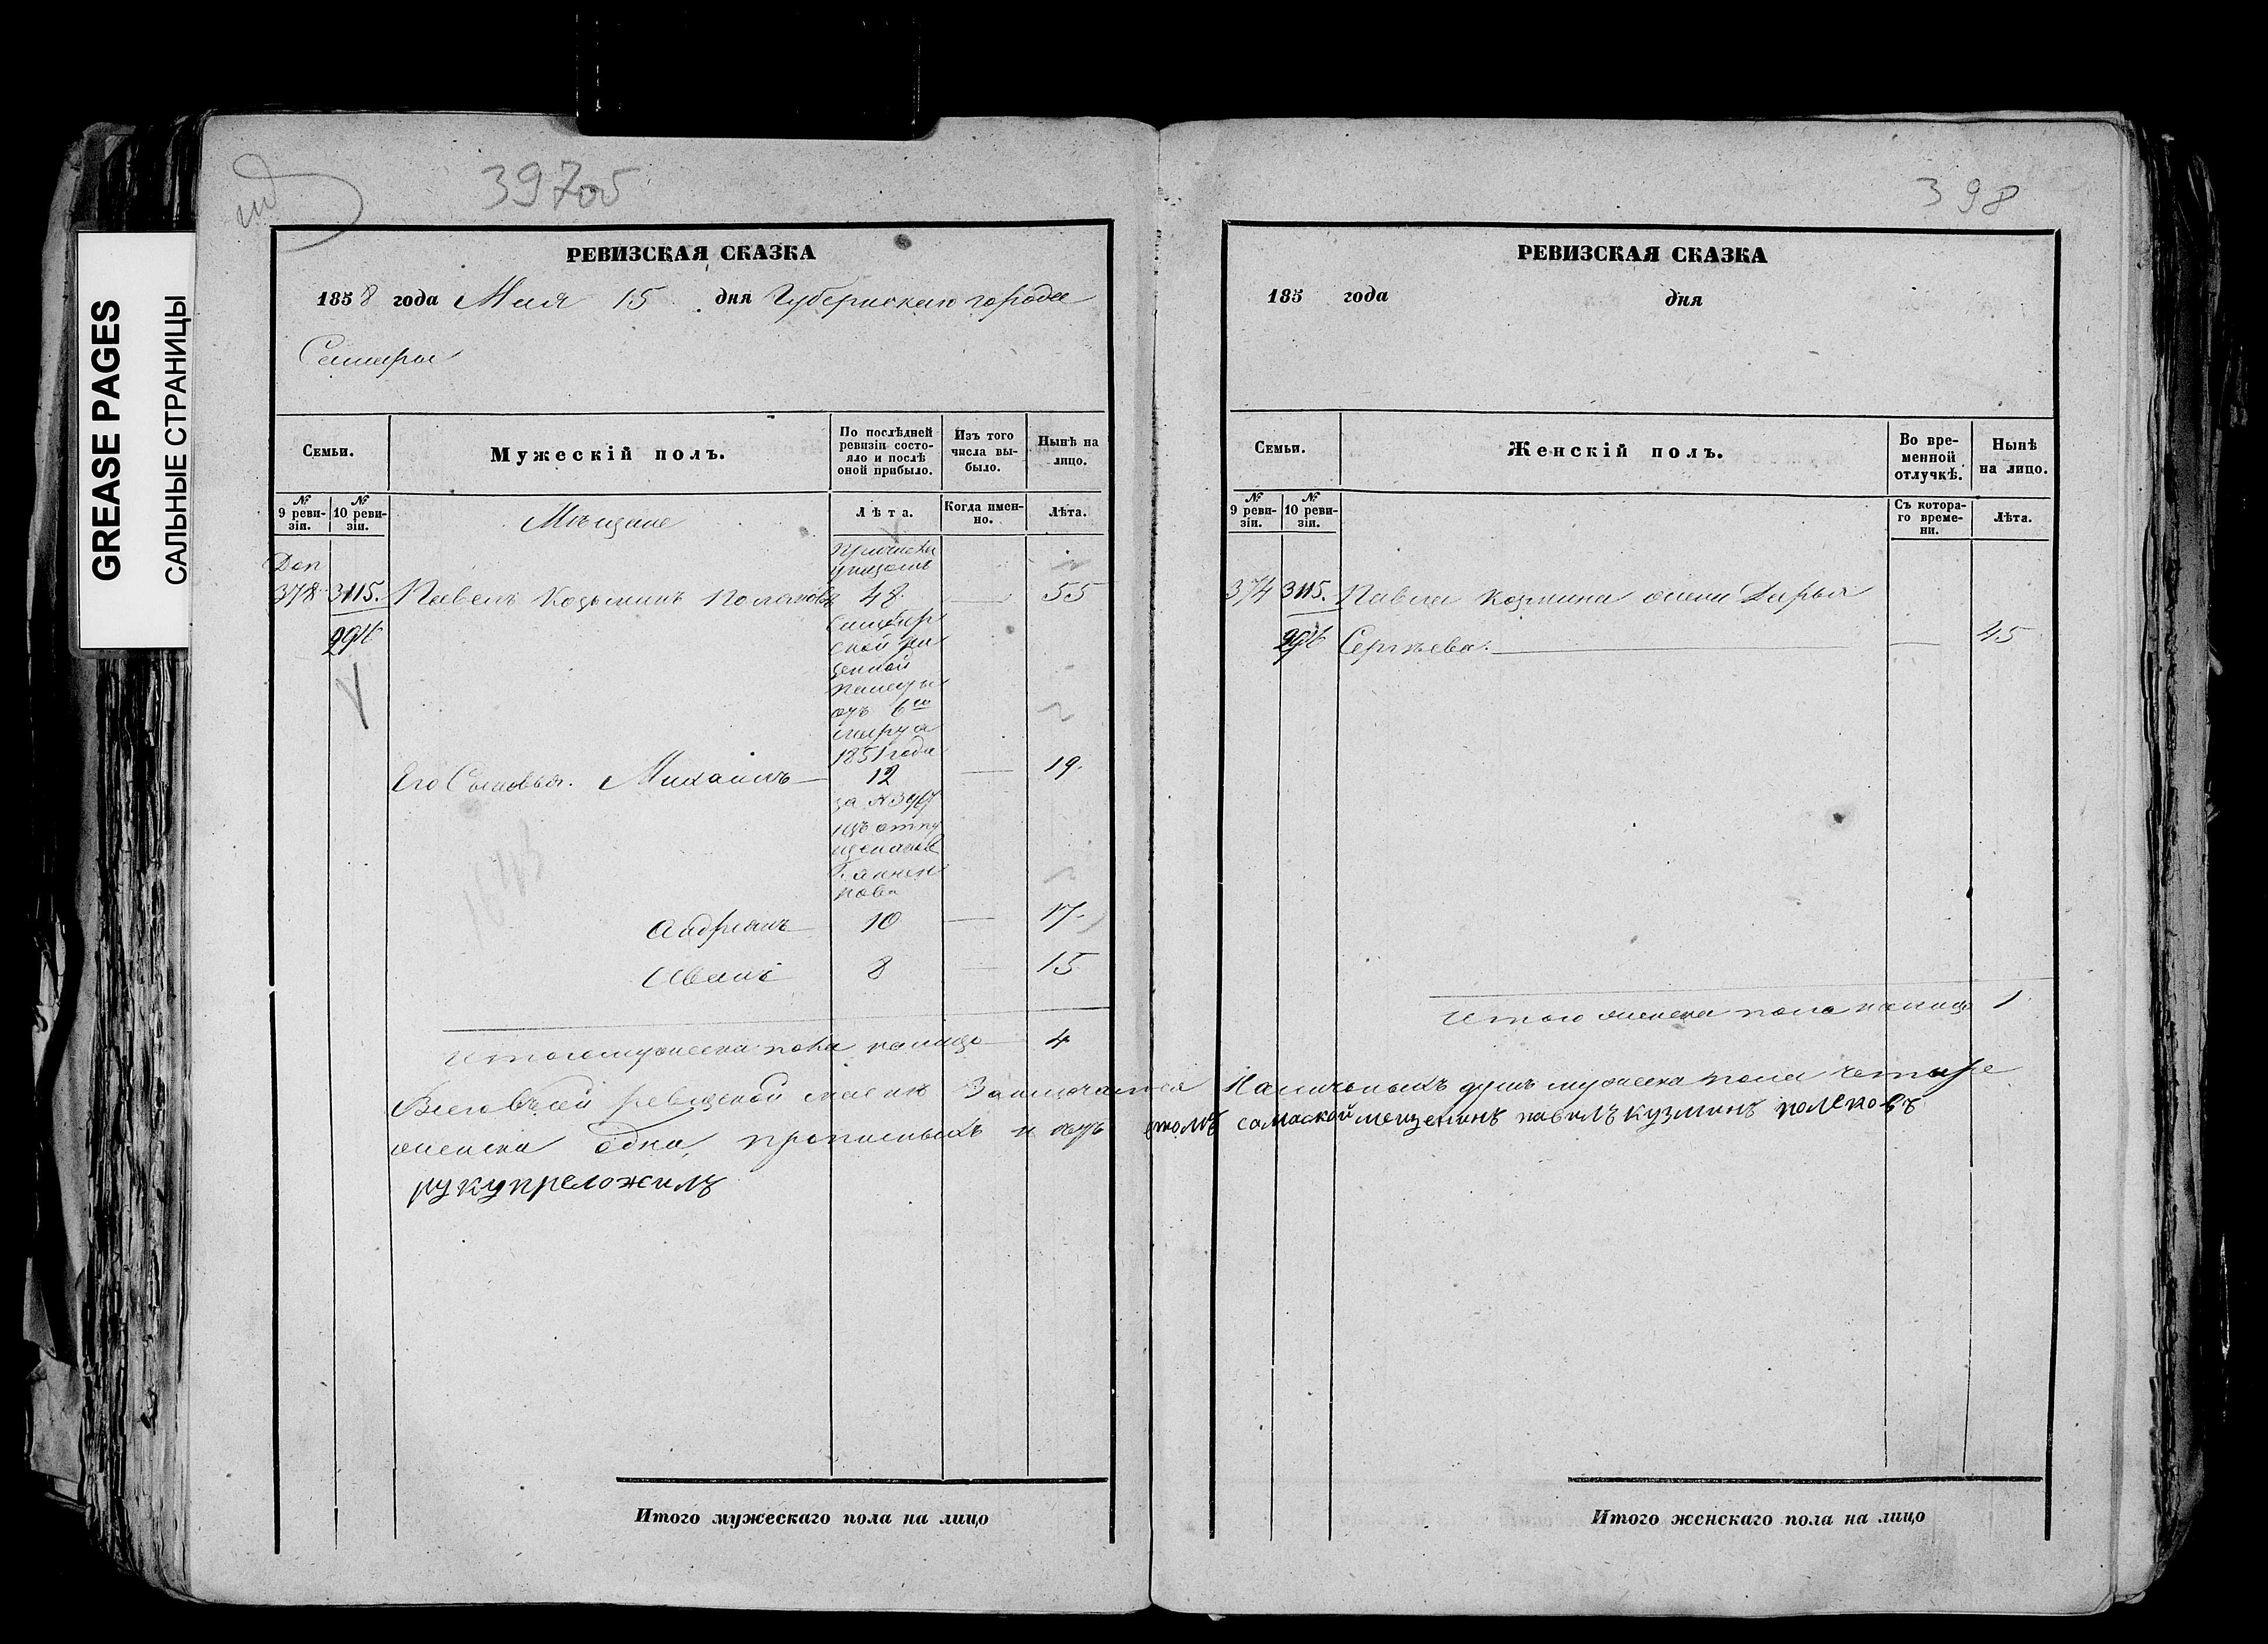 GREASE PAGES
САЛЬНЫЕ СТРАНИЦЫ
397об
РЕВИЗСКАЯ СКАЗКА
1858 года Мая 15 дня Губернскаго города
Самары
Семьи.
Мужескій полъ.
По послѣдней ревизіи состояло и послѣ оной прибыло.
Изъ того числа выбыло.
Нынѣ на лицо.
№ 9 ревизіи.
№ 10 ревизіи.
Мѣщане
Лѣта.
Когда именно.
Лѣта.
Доп
378 3115. Павелъ Козьминъ Поляковъ 48 — 55
1851 года
Его Сыновья. Михаилъ — 12 — 19.
Андриянъ 10 — 17.
Иванъ 8 — 15
Итого мужеска пола налицо 4
Итого мужескаго пола на лицо
398
РЕВИЗСКАЯ СКАЗКА
185 года дня
Семьи.
Женскій полъ.
Во временной отлучкѣ.
Нынѣ на лицо.
№ 9 ревизіи.
№ 10 ревизіи.
Съ котораго времени.
Лѣта.
374 3115. Павла Козмина жена Дарья
Сергѣева. — 45
Итого женска пола налицо 1
Всего въ сей ревизской сказке Заключается Наличныхъ душъ мужеска пола четыре
женска одна, прописныхъ нетъ втомъ самаской мещенинъ павилъ кузминъ полековъ
руку преложилъ
Итого женскаго пола на лицо